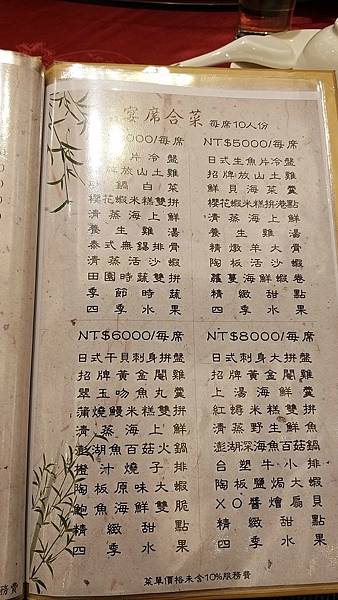 宴席合菜 每席10人份
000/每席
片冷盤
牌放山土雞
鍋白菜
櫻花蝦米糕雙拼
清蒸海上鮮
養生雞湯
泰式無錫排骨
清蒸活沙蝦
田園時蔬雙拼
季節時蔬
四季水果
NT$5000/每席
日式生魚片冷盤
招牌放山土雞
鮮貝海菜羹
櫻花蝦米糕拼港點
清蒸海上鮮
養生雞湯
精燉羊大骨
陶板活沙蝦
蘿蔓海鮮蝦卷
精緻甜點
四季水果
NT$6000/每席
日式干貝刺身拼盤
招牌黃金閹雞
翠玉吻魚丸羹
蒲燒鰻米糕雙拼
清蒸海上鮮
澎湖魚百菇火鍋
橙汁燒子排
陶板原味大蝦
鮑魚海鮮雙脆
精緻甜點
四季水果
NT$8000/每席
日式刺身大拼盤
招牌黃金閹雞
上湯海鮮羹
紅蟳米糕雙拼
清蒸野生鮮魚
澎湖深海魚百菇鍋
台塑牛小排
陶板鹽焗大蝦
XO醬燴扇貝
精緻甜點
四季水果
菜單價格未含10%服務費
務費